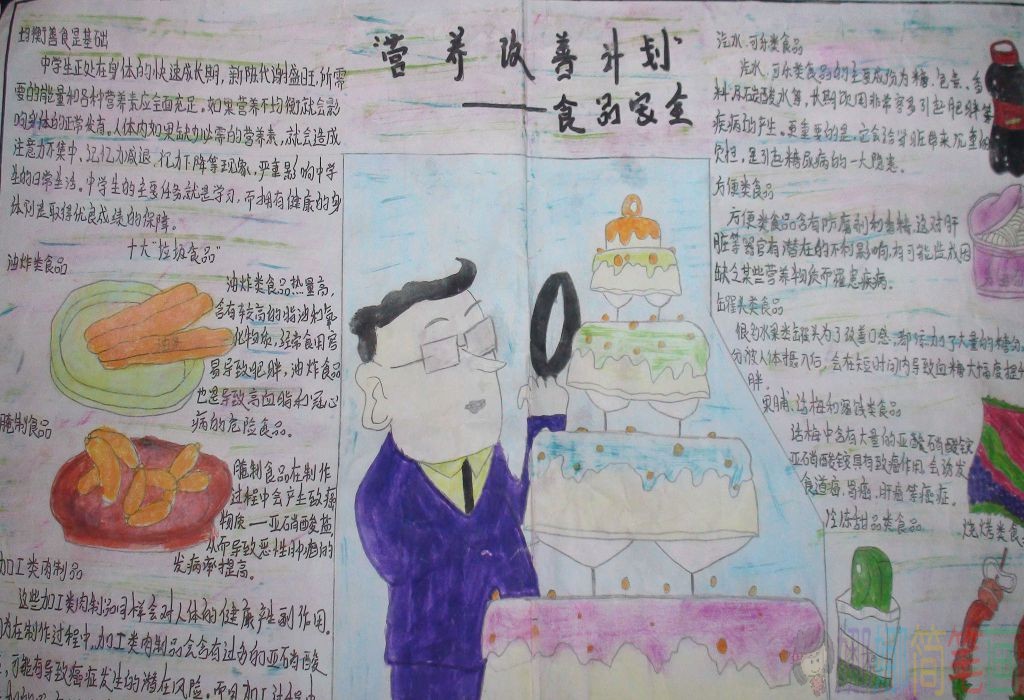 营养改善计划
——食品安全
均衡膳食是基础
中学生正处在身体的快速成长期，新陈代谢盛旺，所需
要的能量和各种营养素应全面充足，如果营养不均衡就会影
响身体的正常发育。人体内如果缺少必需的营养素，就会造成
注意力不集中、记忆力减退、抗力下降等现象，严重影响中学
生的日常生活。中学生的主要任务就是学习，而拥有健康的身
体则是取得优良成绩的保障。
十大“垃圾食品”
油炸类食品
油炸类食品热量高，
含有较高的脂油和氧
化物质，经常食用容
易导致肥胖，油炸食品
也是导致高血脂和冠心
病的危险食品。
腌制食品
腌制食品在制作
过程中会产生致癌
物质——亚硝酸盐
从而导致恶性肿瘤的
发病率提高。
加工类肉制品
这些加工类肉制品同样会对人体的健康产生副作用。
在制作过程中，加工类肉制品会含有过多的亚硝酸
可能有导致癌症发生的潜在风险。
汽水、可乐类食品
汽水、可乐类食品的主要成份为糖、色素、香
料及碳酸水等，长期饮用非常容易引起肥胖等
疾病的产生。更重要的是，它会给肾脏带来沉重的
负担，是引起糖尿病的一大隐患。
方便类食品
方便类食品含有防腐剂和香精，这对肝
脏等器官有潜在的不利影响，有可能造成因
缺乏某些营养物质而罹患疾病。
罐头类食品
很多水果类罐头为了改善口感，都添加了大量的糖分，
分被人体摄入后，会在短时间内导致血糖大幅度提升
胖。
果脯、话梅和蜜饯类食品
话梅中含有大量的亚硝酸铵
亚硝酸铵具有致癌作用，会诱发
食道癌、胃癌、肝癌等癌症。
冷冻甜品类食品
烧烤类食
简笔